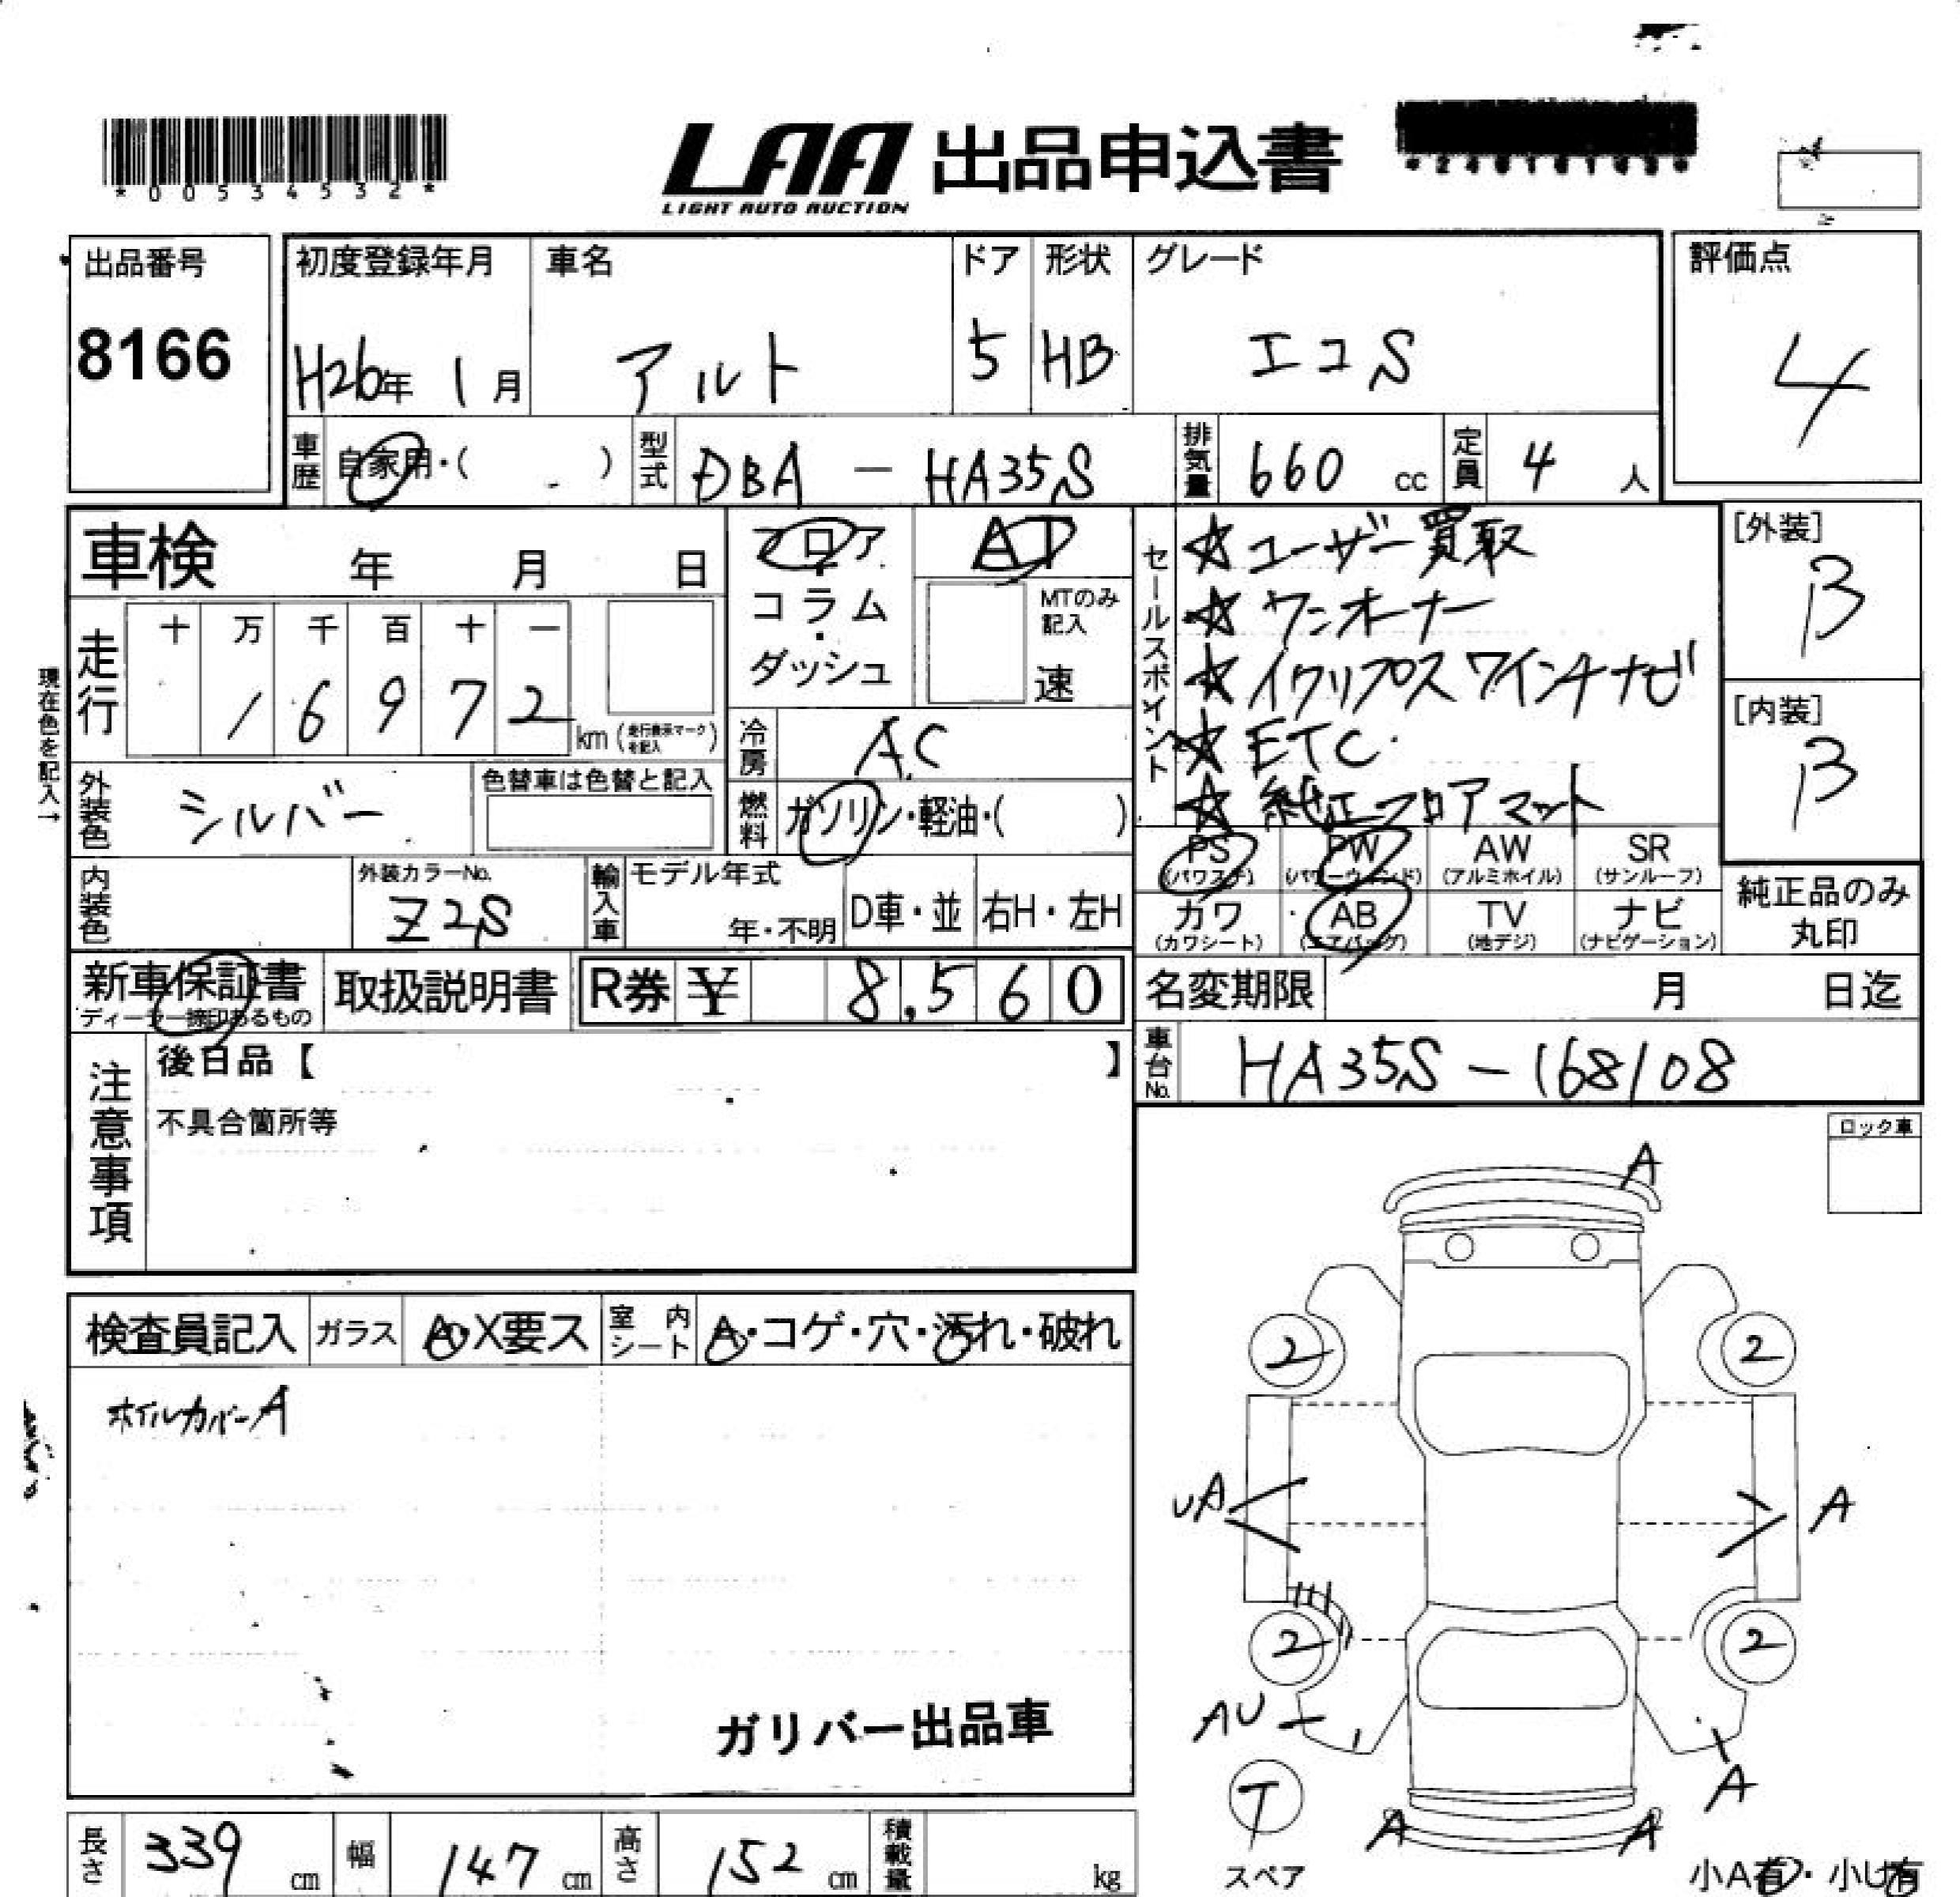 *00534532*
LAA 出品申込書
LIGHT AUTO AUCTION
出品番号 初度登録年月 車名 ドア 形状 グレード 評価点
8166 H26年 1月 アルト 5 HB エコS 4
車歴 自家用・( ) 型式 DBA - HA35S 排気量 660 cc 定員 4 人
車検 年 月 日
フロア・コラム・ダッシュ
AT
MTのみ記入
速
セールスポイント
☆ユーザー買取
☆ワンオーナー
☆イクリプス ワインチナビ
☆ETC
☆純正フロアマット
[外装]
B
[内装]
B
走行 十 万 千 百 十 一
1 6 9 7 2 km (走行表示マークを記入)
現在色を記入→
冷房 AC
外装色 シルバー 色替車は色替と記入
燃料 ガソリン・軽油・( )
PS AW SR
PW
(パワステ) (パワーウィンド) (アルミホイル) (サンルーフ)
内装色 外装カラーNo. Z2S 輸入車 モデル年式 年・不明 D車・並 右H・左H
カワ AB TV ナビ
(カワシート) (エアバッグ) (地デジ) (ナビゲーション)
純正品のみ
丸印
新車保証書 取扱説明書 R券 ¥ 8,560
ディーラー捺印あるもの
名変期限 月 日迄
車台No. HA35S-168108
注意事項
後日品【 】
不具合箇所等
ロック車
検査員記入 ガラス A・X要ス 室内シート A・コゲ・穴・汚れ・破れ
ホイルカバーA
ガリバー出品車
A
2 2
UA A
2 2
AU A
T
スペア
A A
小A有・小U有
長さ 339 cm 幅 147 cm 高さ 152 cm 積載量 kg